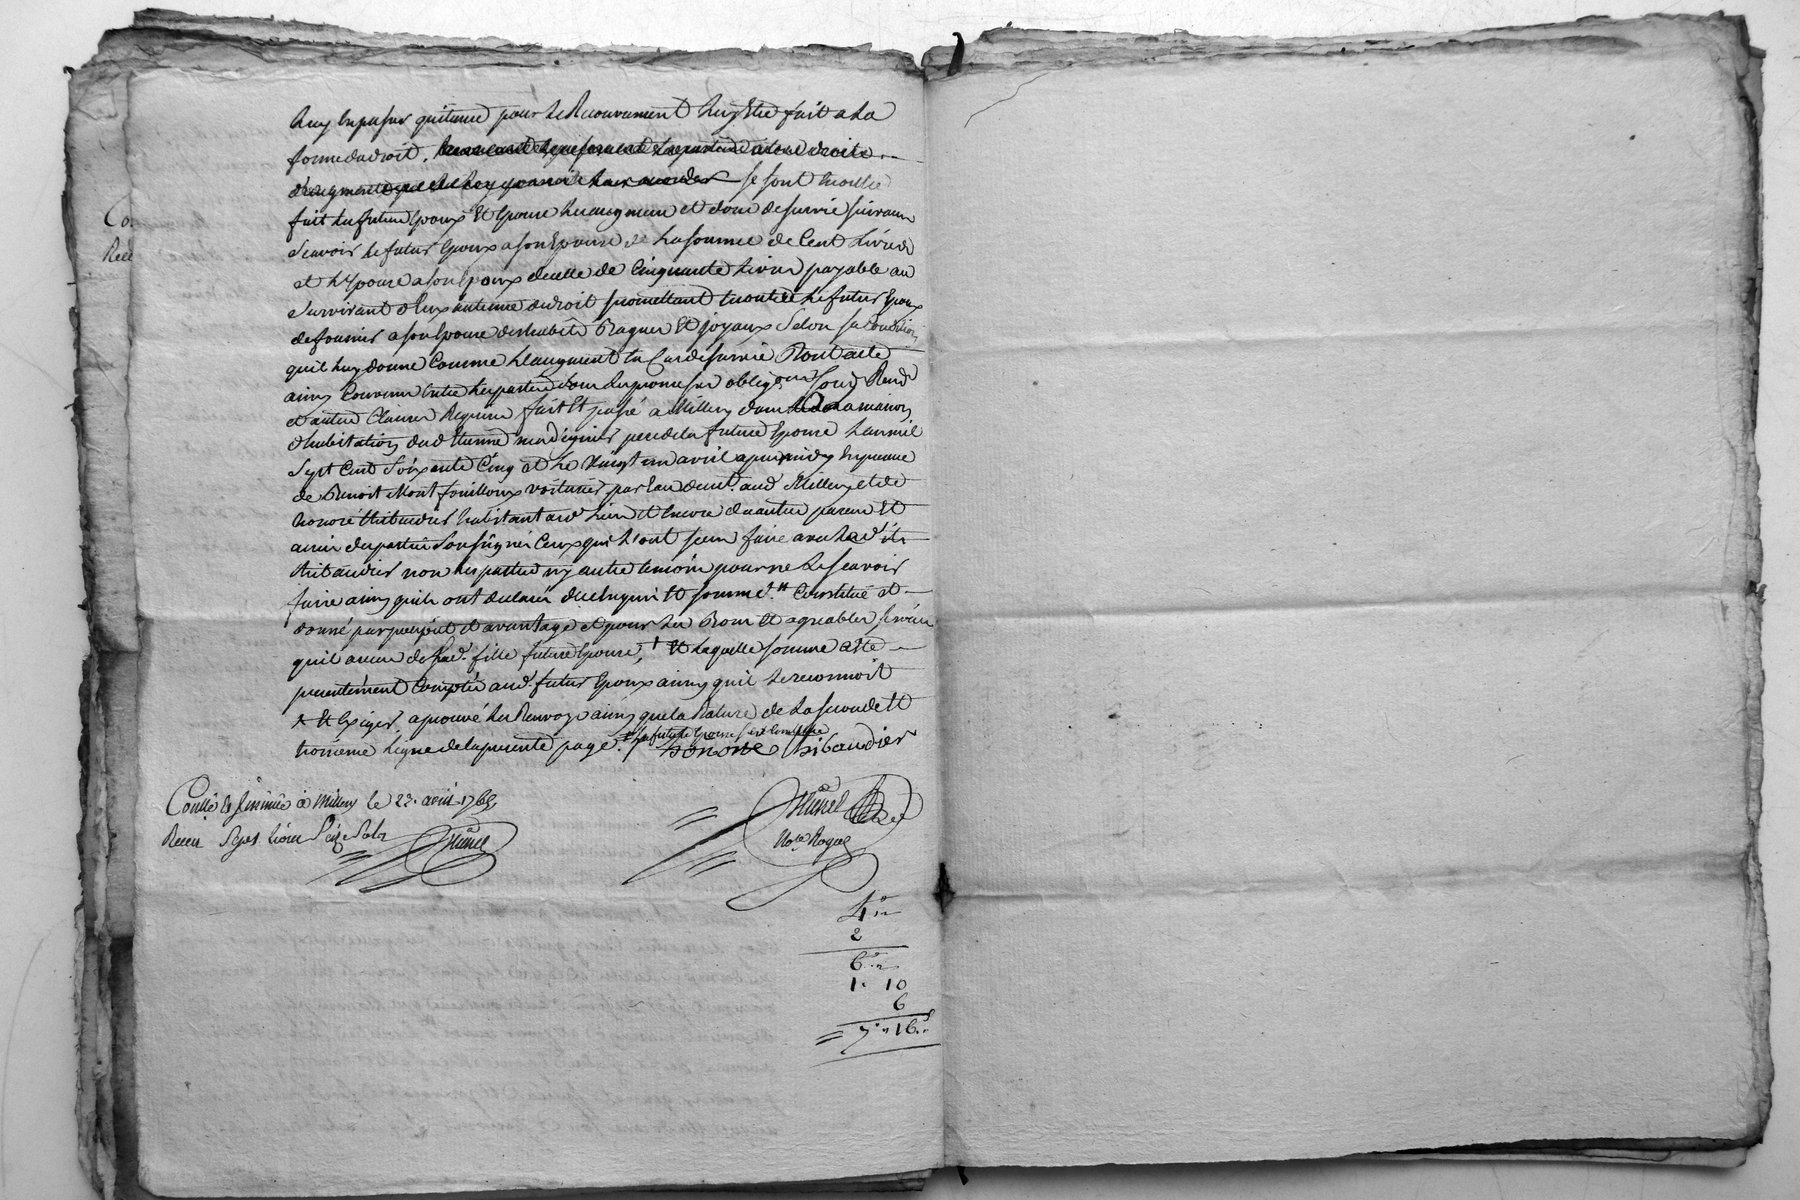 luy en passer quittance pour le Recouvrement luy Etre fait a la
forme du droit.
se sont Enoutre
fait les futurs Epoux Et Epouse en augment et don de survie suivant
scavoir le futur Epoux a son Epouse de la somme de Cent livres
et l'Epouse a son Epoux de celle de Cinquante livres payable au
survivant d'Eux au terme du droit promettant En outre le futur Epoux
de fournir a son Epouse des habits Bagues Et joyaux Selon sa Condition
qu'il luy donne Comme l'augment En Cas de survie Dont acte
ainsy Convenu Entre les parties sous les promesses obligons Soum Renon
et autres Clauses Requises fait Et passé a Millery dans la maison
d'habitation dud Etienne pere de la future Epouse l'an mil
Sept Cent Soixante Cinq et le Vingt un avril apres midy En presence
de Benoit Montfouilloux voiturier par Eau demt. aud Millery et de
honoré thibaudier habitant aud lieu et Encore d'autres parens Et
amis des parties Soussignés Ceux qui l'ont sceu faire avec led. Sr
thibaudier non les parties ny autre temoin pour ne le scavoir
faire ainsy qu'ils ont declaré de ce Enquis Et sommés. Constitué et
donné par preciput et avantage et pour les Bons Et agreables services
qu'il a receu de sad. fille future Epouse, Et laquelle somme a Eté
presentement Comptée aud. futur Epoux ainsy qu'il le reconnoit
Et Exiger aprouvé les Renvoys ainsy que la Rature de la seconde Et
troisieme ligne de la presente page.
honoré thibaudier
Conllé & Insinué à Millery le 23. avril 1765
Receu Sept livres Seize Sols
No.re Royal
4
2
6
1. 10
6
7 16